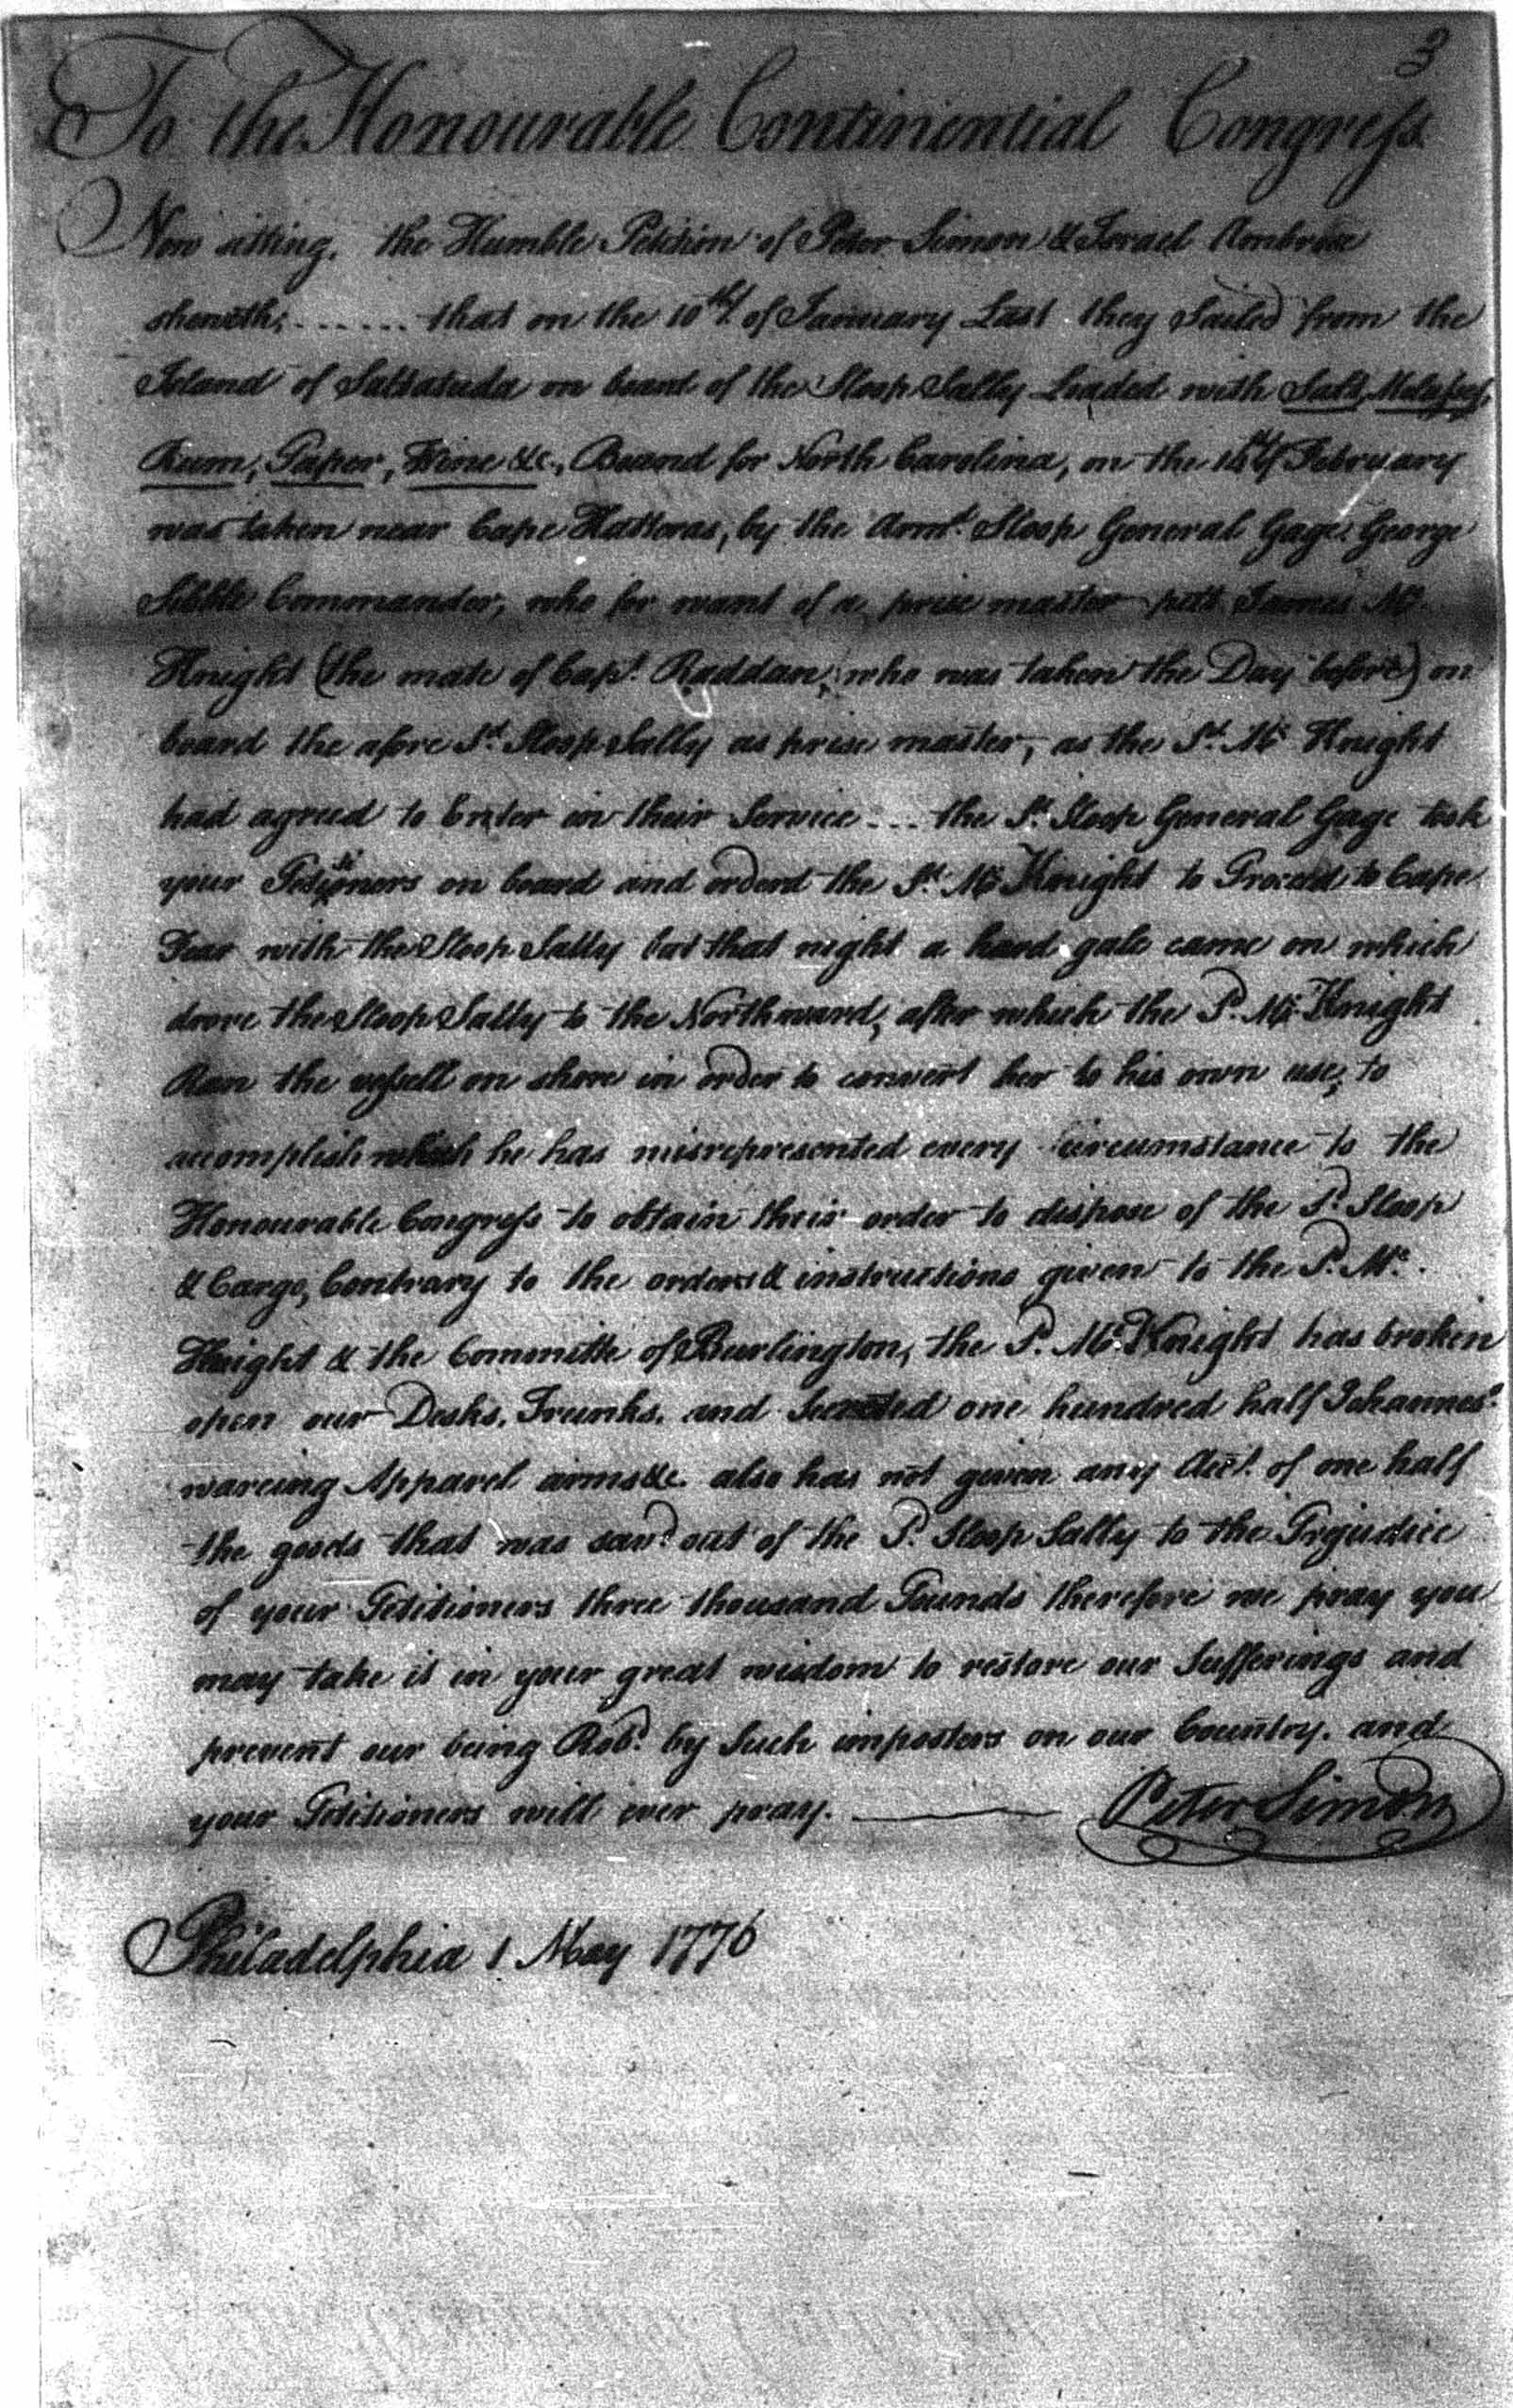 3
To the Honourable Continential Congress
Now sitting, the Humble Petition of Peter Simon & Israel Ambrose
sheweth; ...... that on the 10th. of January Last they Sailed from the
Island of Saltatuda on board of the Sloop Sally Loaded with Salt, Molasses,
Rum, Paper, Wine &c., Bound for North Carolina, on the 14th of February
was taken near Cape Hatteras, by the Armd. Sloop General Gage George
Sibble Commander, who for want of a prise master putt James Mc.
Knight (the mate of Capt. Raddan, who was taken the Day before) on
board the afore Sd. Sloop Sally as prise master, as the Sd. Mc. Knight
had agreed to Enter in their Service ... the Sd. Sloop General Gage took
your Petitioners on board and orderd the Sd. Mc. Knight to Proceed to Cape
Fear with the Sloop Sally but that night a hard gale came on which
drove the Sloop Sally to the Northward, after which the Sd. Mc. Knight
Ran the vessell on shore in order to convert her to his own use, to
accomplish which he has misrepresented every circumstance to the
Honourable Congress to obtain their order to dispose of the Sd. Sloop
& Cargo, Contrary to the orders & instructions given to the Sd. Mc.
Knight & the Committe of Burlington, the Sd. Mc. Knight has broken
open our Desks, Trunks, and Secreted one hundred half Johannes.
wareing Apparel arms &c. also has not given any Acct. of one half
the goods that was savd. out of the Sd. Sloop Sally to the Prejudice
of your Petitioners three thousand Pounds therefore we pray you
may take it in your great wisdom to restore our Sufferings and
prevent our being Robd. by Such imposters on our Country. and
your Petitioners will ever pray. Peter Simon
Philadelphia 1 May 1776